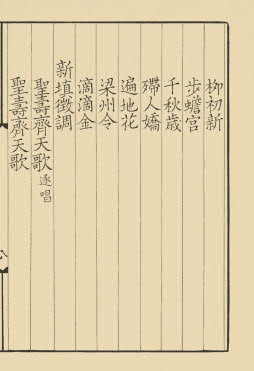 柳初新
步蟾宮
千秋歲
殢人嬌
遍地花
梁州令
滴滴金
新填徵調
聖壽齊天歌 逐唱
聖壽齊天歌